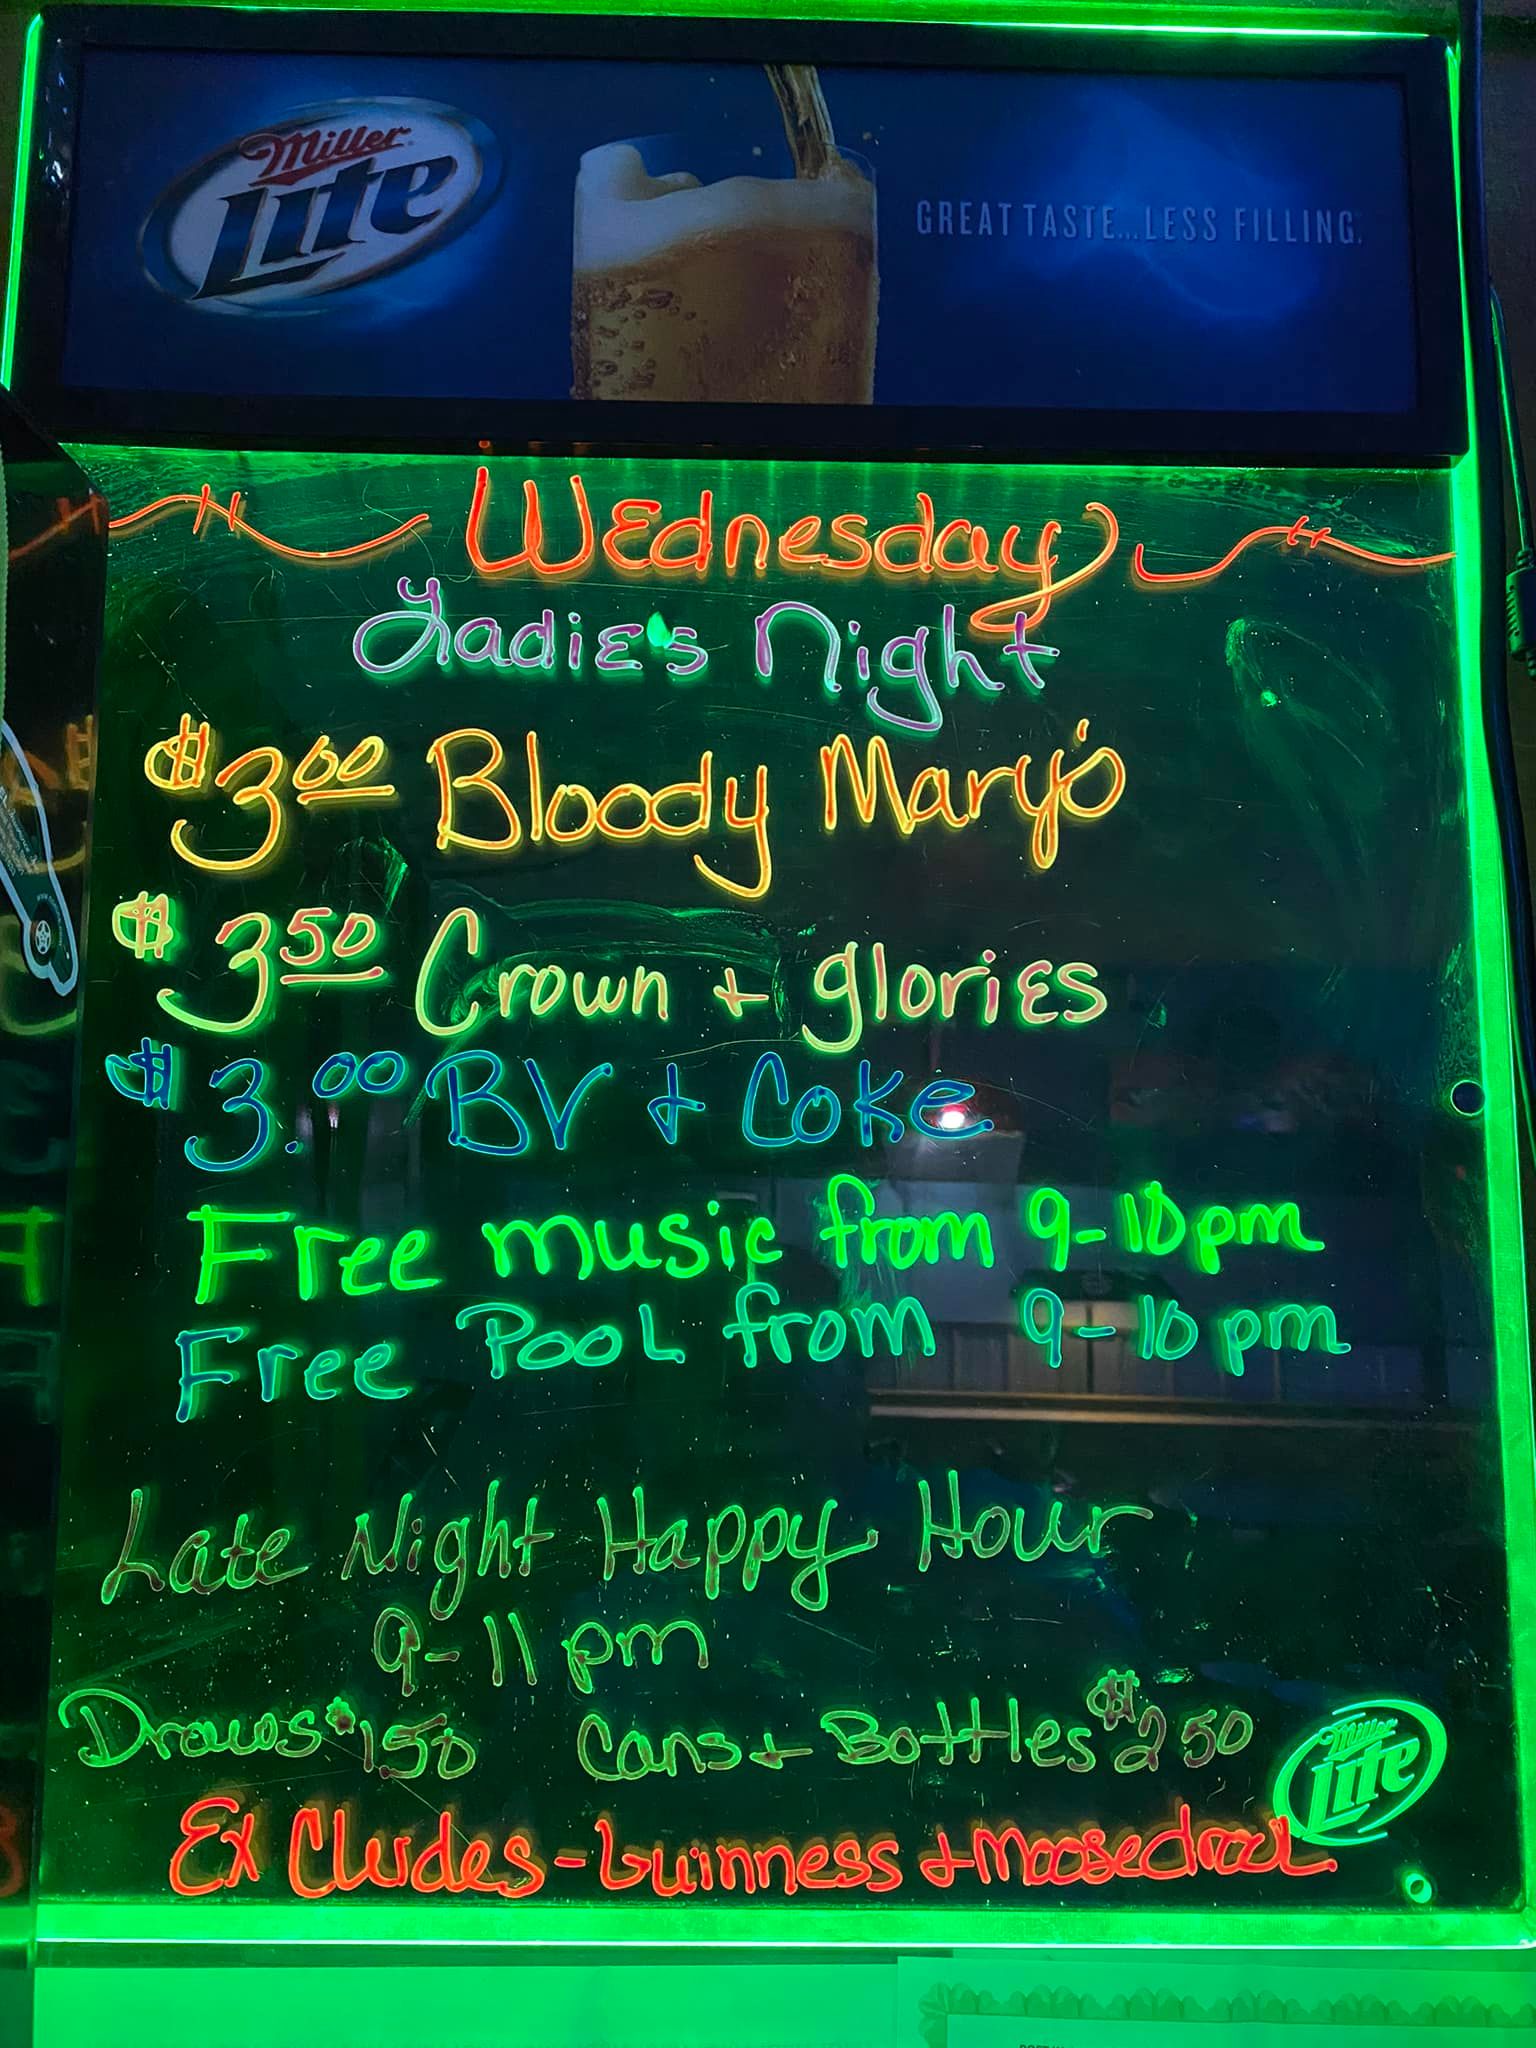 Miller
Lite
GREAT TASTE...LESS FILLING.
Wednesday
Ladie's Night
$3.00 Bloody Mary's
$3.50 Crown + glories
$3.00 BV + Coke
Free music from 9-10pm
Free POOL from 9-10pm
Late Night Happy Hour
9-11pm
Draws $1.50 Cans + Bottles $2.50
ExCludes - Guinness + Moosedrool
Miller
Lite